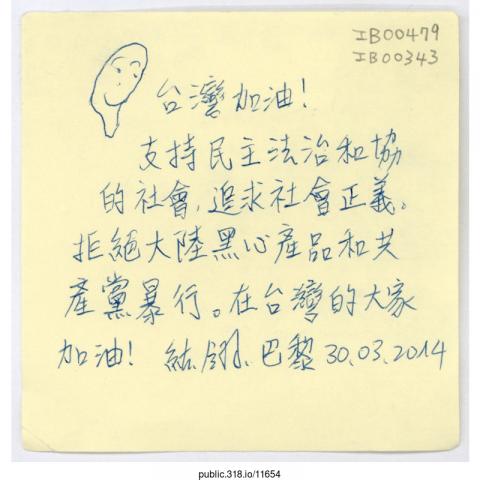 IB00479
IB00343
台灣加油!
支持民主法治和協
的社會，追求社會正義。
拒絕大陸黑心產品和共
產黨暴行。在台灣的大家
加油! 巴黎 30.03.2014
public.318.io/11654